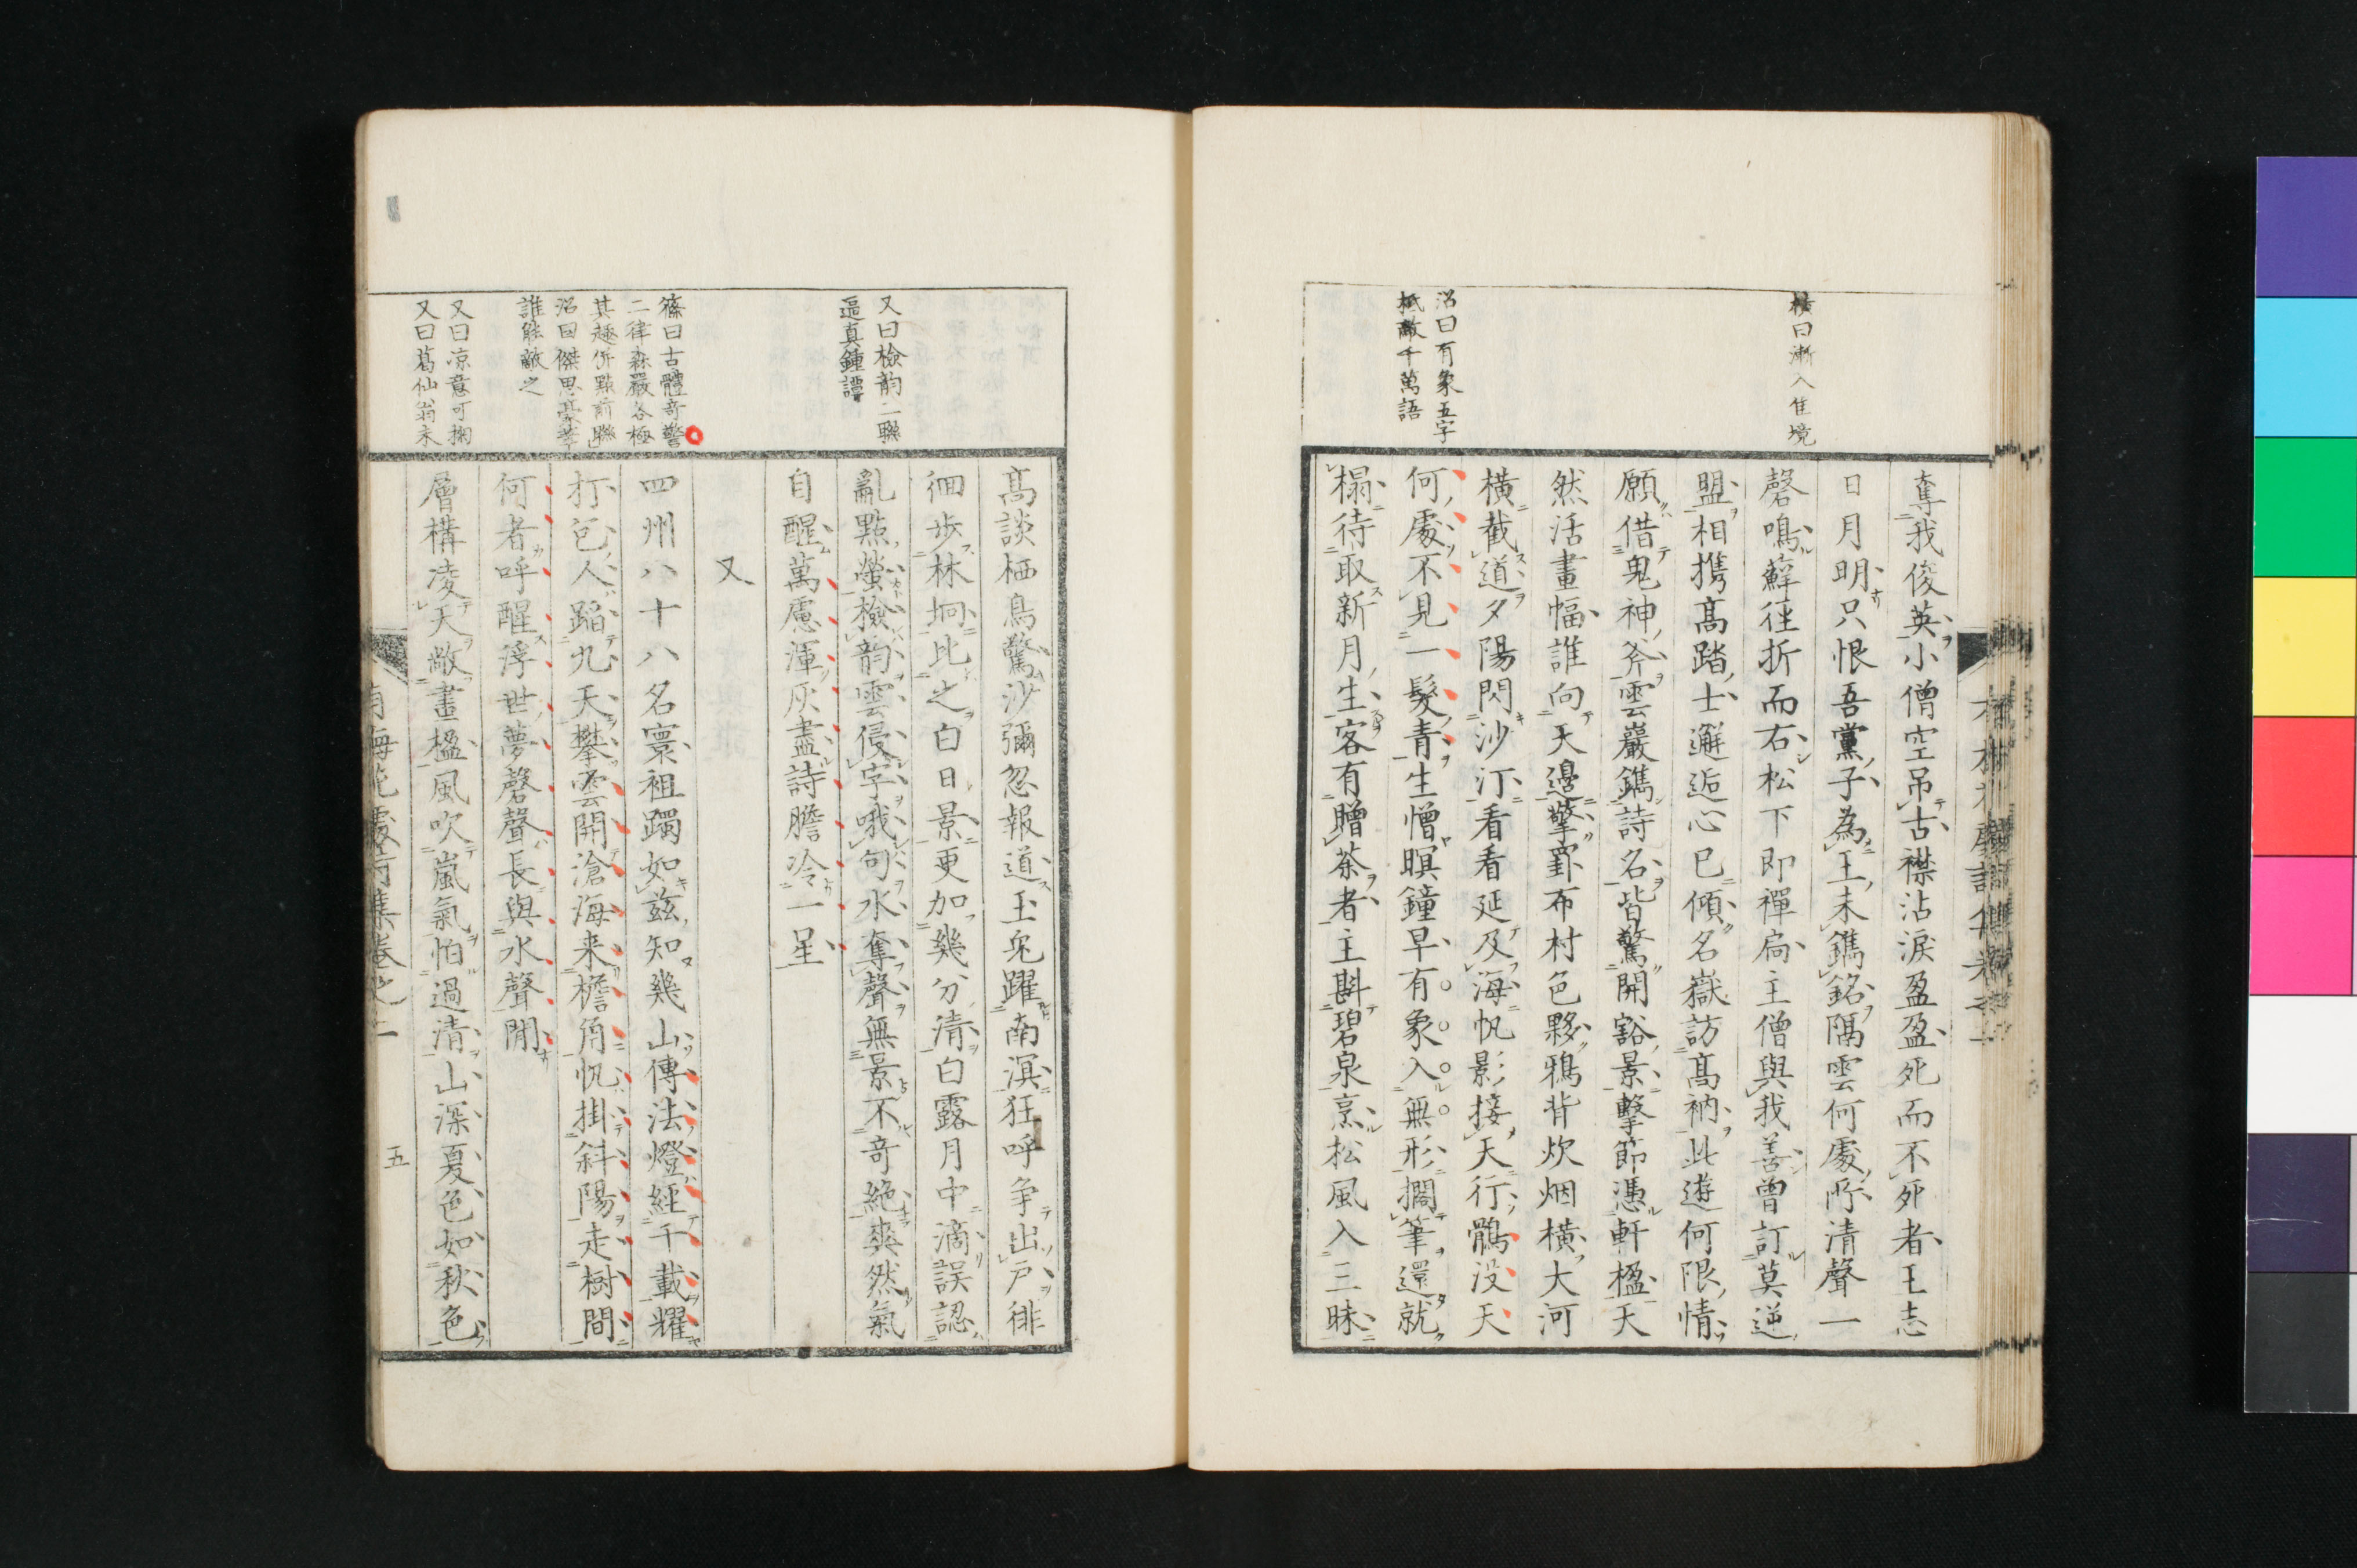 横曰漸入佳境
沼曰有象五字
抵敵千萬語
奪我俊英小僧空吊古襟沾淚盈盈死而不死者王志
日月明只恨吾黨子為王未鐫銘隔雲何處所清聲一
磬鳴蘚徑折而右松下即禪扃主僧與我善曾訂莫逆
盟相携高踏士邂逅心已傾名嶽訪高衲此遊何限情
願借鬼神斧雲巖鐫詩名皆驚開豁景擊節憑軒楹天
然活畫幅誰向天邊擎罫布村色夥鴉背炊烟橫大河
橫截道夕陽閃沙汀看看延及海帆影接天行鶻没天
何處不見一髮青生憎暝鐘早有象入無形擱筆還就
榻待取新月生客有贈茶者主斟碧泉烹松風入三昧
又曰檢韵二聯
逼真鍾譚
篠曰古體奇警
二律森嚴各極
其趣所點前聯
沼曰傑思豪華
誰能敵之
又曰凉意可掬
又曰葛仙翁未
高談栖鳥驚沙彌忽報道玉兎躍南溟狂呼争出戶徘
徊歩林坰比之白日景更加幾分清白露月中滴誤認
亂點螢檢韵雲侵字哦句水奪聲無景不奇絶爽然氣
自醒萬慮渾灰盡詩膽冷一星
又
四州八十八名寰祖躅如兹知幾山傳法燈經千載耀
打包人蹈九天攀雲開滄海来檐角帆掛斜陽走樹間
何者呼醒浮世夢磬聲長與水聲閒
層構凌天敞畫楹風吹嵐氣怕過清山深夏色如秋色
五